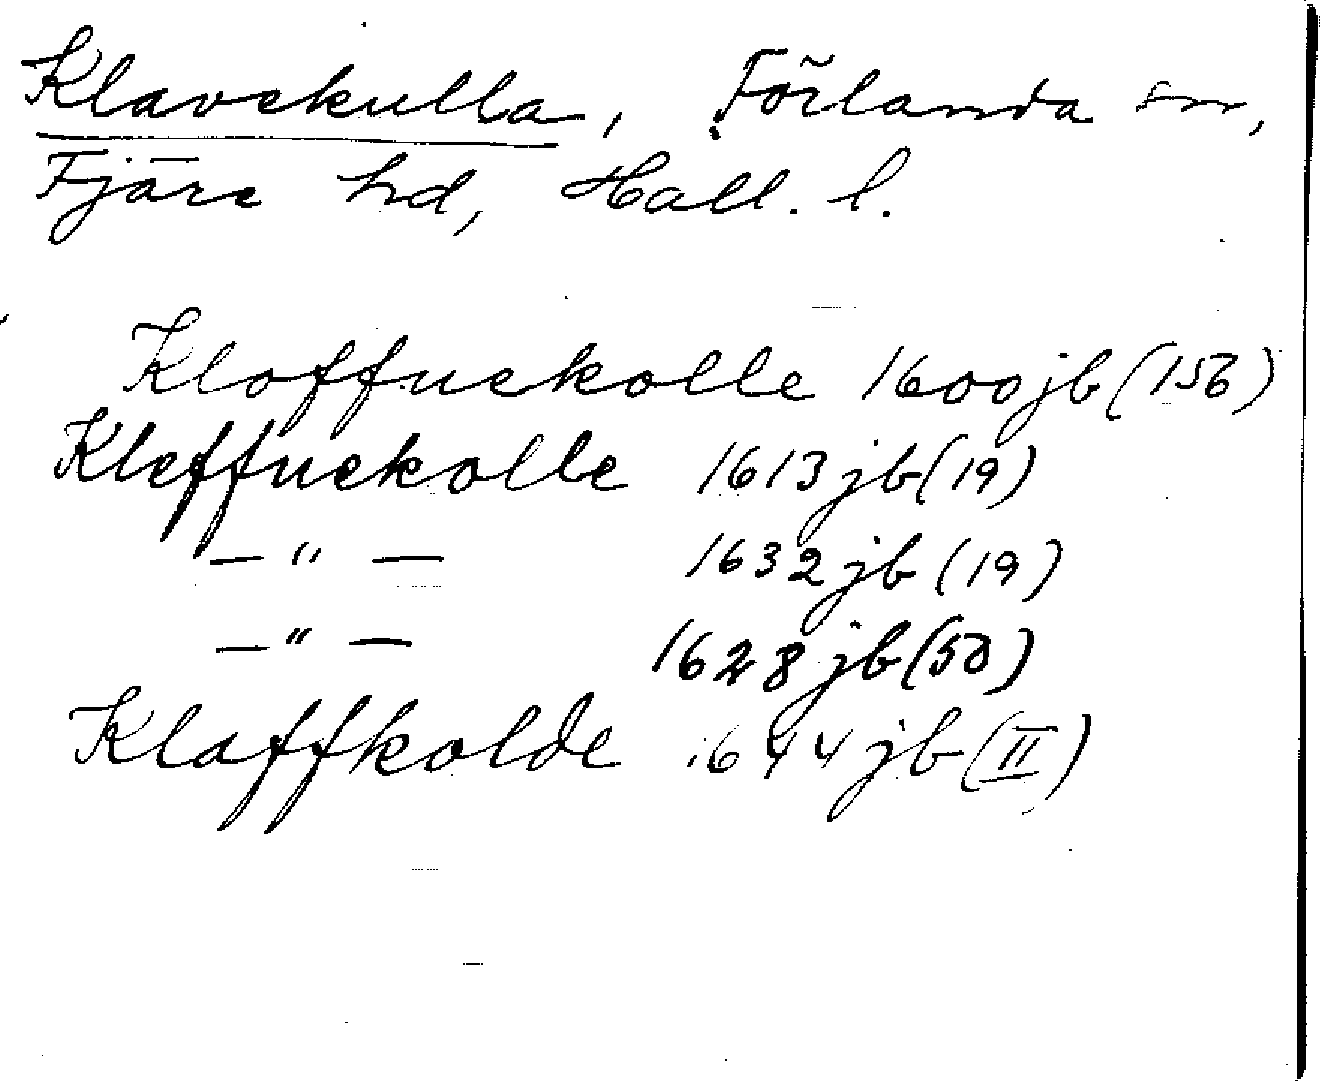 Klavekulla, Förlanda sn,
Fjäre hd, Hall. l.
Kloffuekolle 1600 jb (156)
Kleffuekolle 1613 jb (19)
— " — 1632 jb (19)
— " — 1628 jb (50)
Klaffkolde 1644 jb (II)